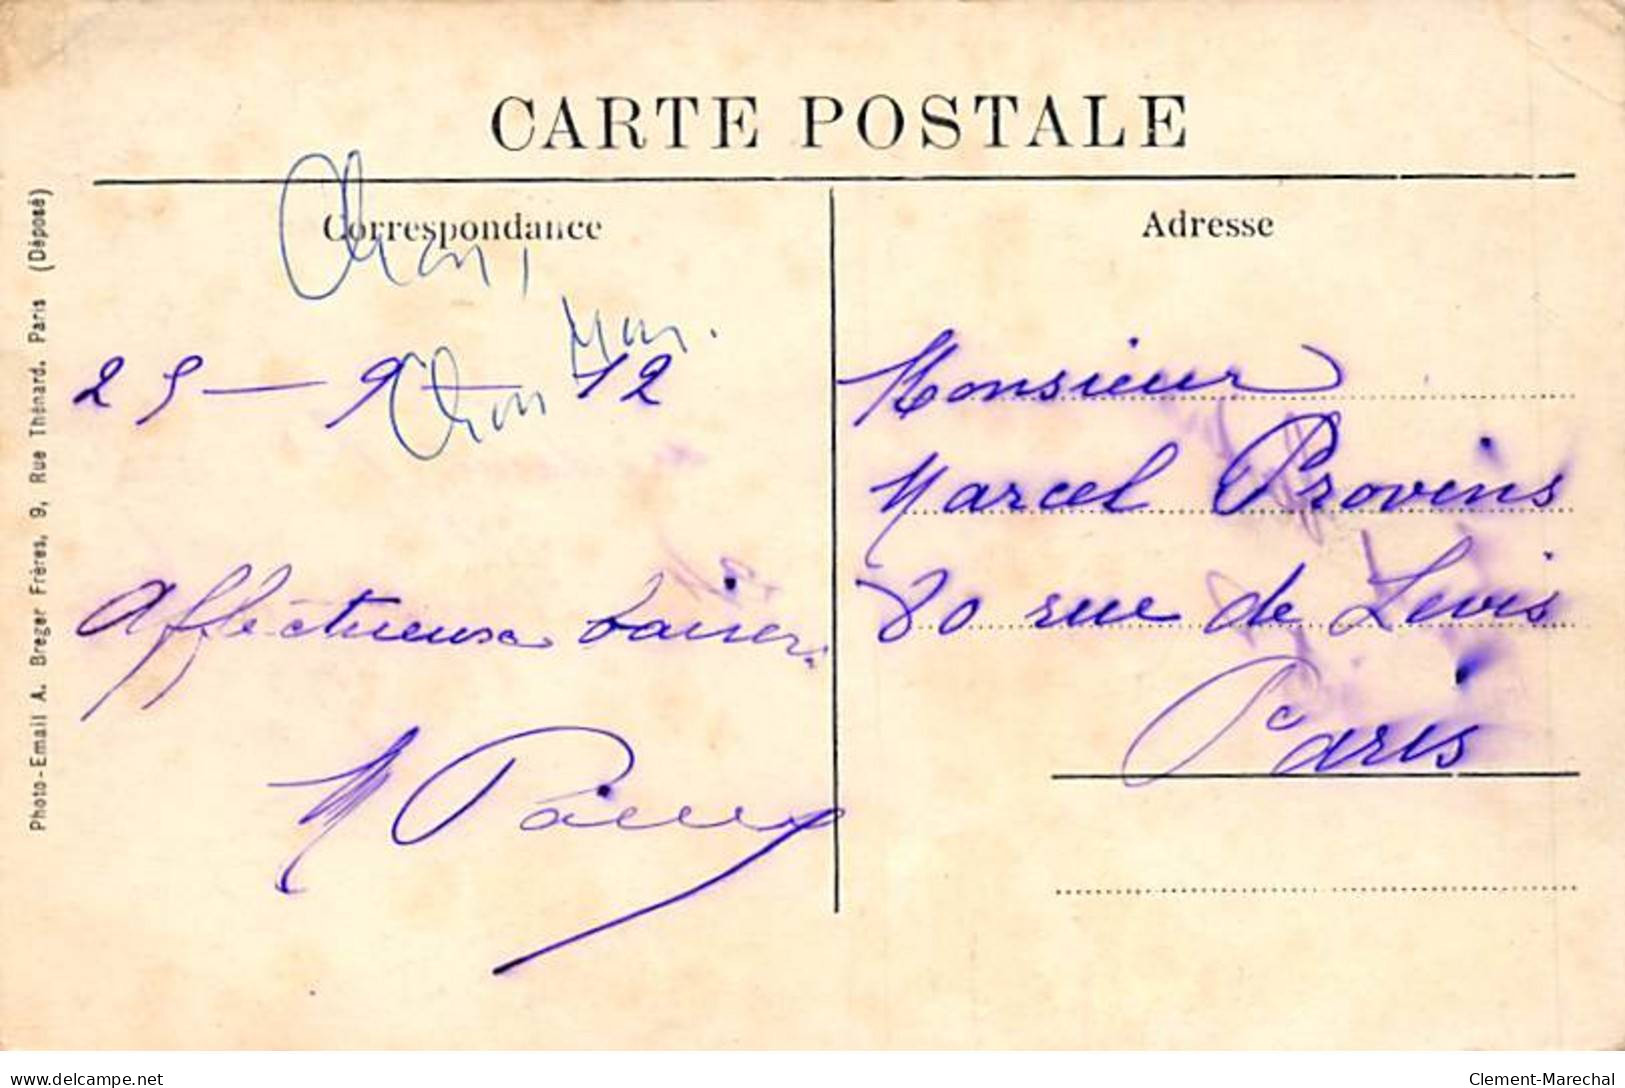 CARTE POSTALE
Correspondance
25 — 9 — 12
Affectueux baisers
Adresse
Monsieur
Marcel Provins
80 rue de Levis
Paris
Photo-Email A. Breger Frères, 9, Rue Thénard. Paris (Déposé)
www.delcampe.net
Clement-Marechal